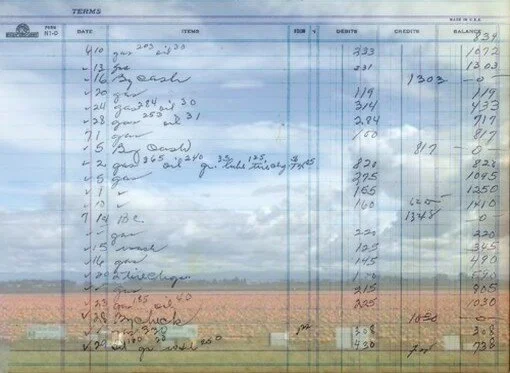 TERMS
FORM NI-D DATE ITEMS FOLIO ✓ DEBITS CREDITS BALANCE
MADE IN U.S.A.
839
6/10 gas 203 oil 30 233 1072
✓ 13 gas 231 1303
✓ 16 By Cash 1303 -0-
✓ 20 gas 119 119
✓ 24 gas 284 oil 30 314 433
✓ 28 gas 253 oil 31 284 717
7/1 gas 100 817
✓ 5 By Cash 817 -0-
✓ 2 gas 365 oil 240 35 lube 125 820 820
✓ 5 gas 275 1095
✓ 9 ✓ 155 1250
✓ 13 ✓ 160 1410
7 14 B.C. 1348 -0-
✓ ✓ gas 220 220
✓ 15 wash 125 345
✓ 16 gas 145 490
✓ 20 590
✓ ✓ gas 215 805
✓ 23 gas 185 oil 40 225 1030
✓ 28 By check 1030 -0-
320 308 308
✓ 29 wash 200 430 738